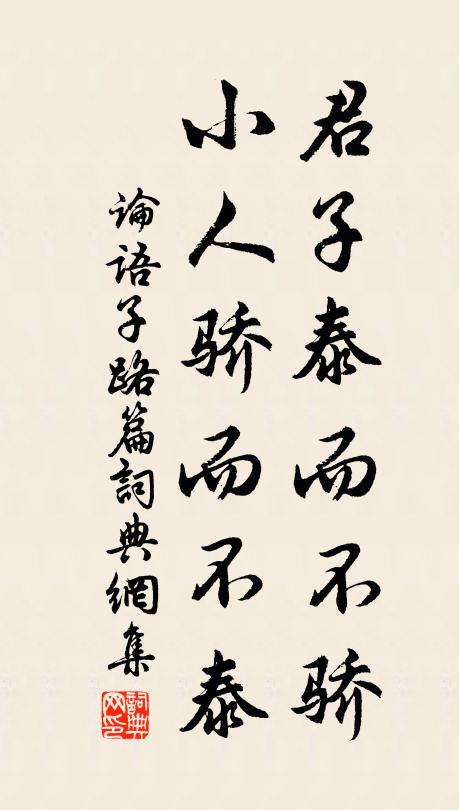 君子泰而不骄
小人骄而不泰
论语子路篇词典網集
詞典网印